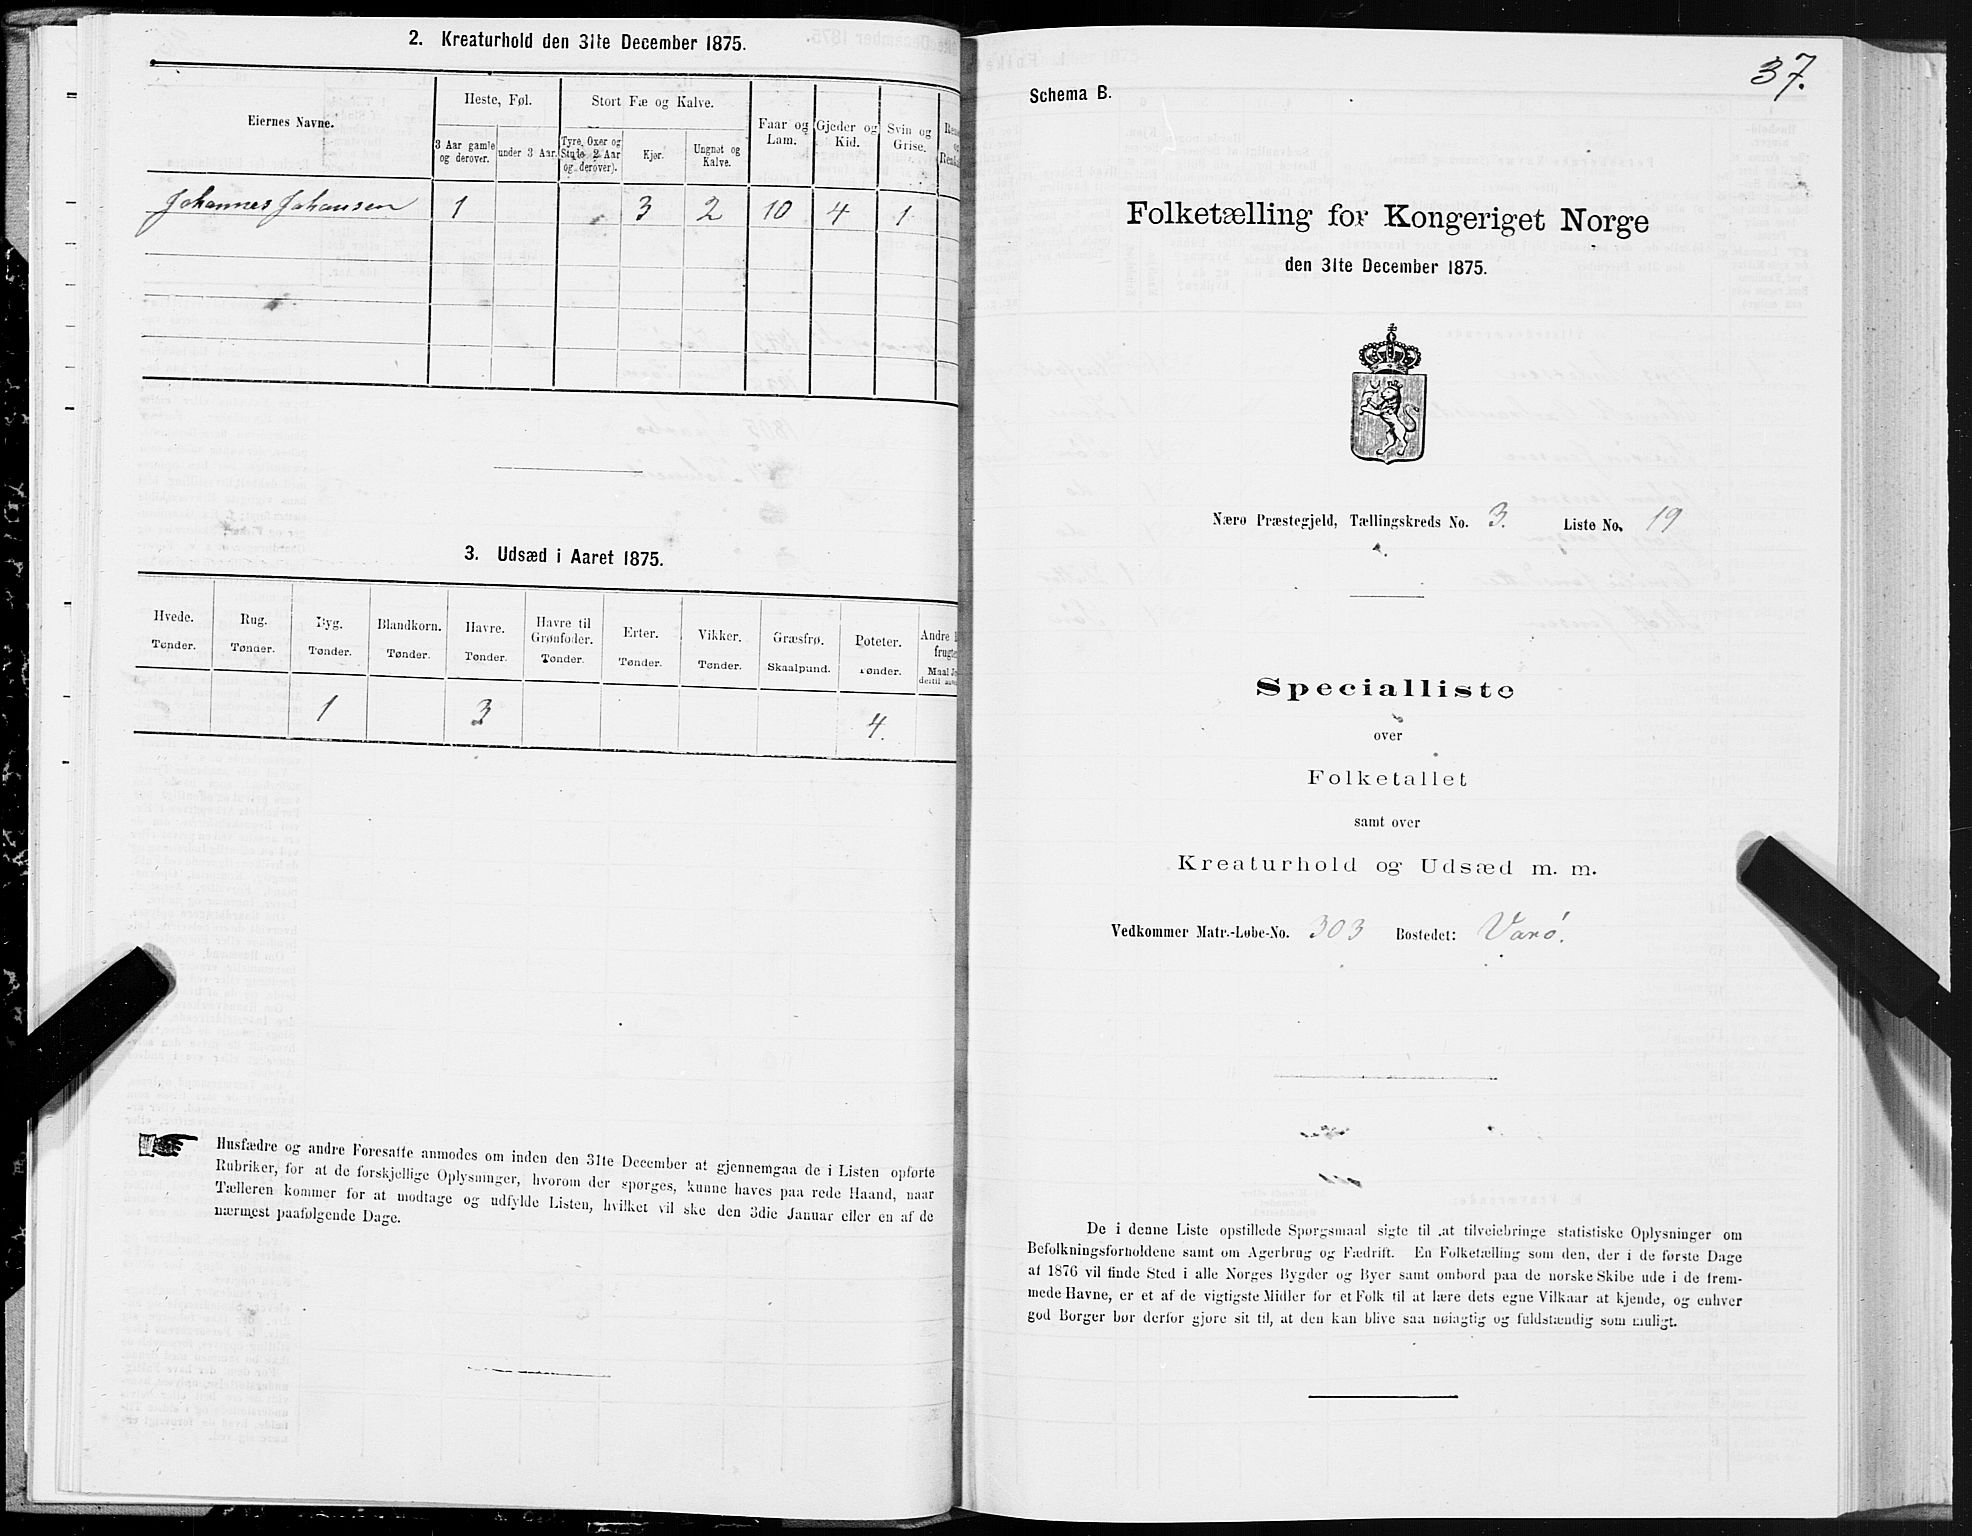 2. Kreaturhold den 31te December 1875.
Eiernes Navne.
Heste, Føl.
Stort Fæ og Kalve.
Faar og Lam.
Gjeder og Kid.
Svin og Grise.
3 Aar gamle og derover.
under 3 Aar.
Tyre, Oxer og Stude 2 Aar og derover).
Kjør.
Ungnøt og Kalve.
Johannes Johansen 1 3 2 10 4 1
3. Udsæd i Aaret 1875.
Hvede. Rug. Byg. Blandkorn. Havre. Havre til Grønfoder. Erter. Vikker. Græsfrø. Poteter. Andre
Tønder. Tønder. Tønder. Tønder. Tønder. Tønder. Tønder. Tønder. Skaalpund. Tønder. Maal
1 3 4.
Husfædre og andre Foresatte anmodes om inden den 31te December at gjennemgaa de i Listen opførte
Rubriker, for at de forskjellige Oplysninger, hvorom der spørges, kunne haves paa rede Haand, naar
Tælleren kommer for at modtage og udfylde Listen, hvilket vil ske den 3die Januar eller en af de
nærmest paafølgende Dage.
37.
Schema B.
Folketælling for Kongeriget Norge
den 31te December 1875.
Nærø Præstegjeld, Tællingskreds No. 3. Liste No. 19
Specialliste
over
Folketallet
samt over
Kreaturhold og Udsæd m. m.
Vedkommer Matr.-Løbe-No. 303 Bostedet: Varø.
De i denne Liste opstillede Spørgsmaal sigte til at tilveiebringe statistiske Oplysninger om
Befolkningsforholdene samt om Agerbrug og Fædrift. En Folketælling som den, der i de første Dage
af 1876 vil finde Sted i alle Norges Bygder og Byer samt ombord paa de norske Skibe ude i de frem-
mede Havne, er et af de vigtigste Midler for et Folk til at lære dets egne Vilkaar at kjende, og enhver
god Borger bør derfor gjøre sit til, at den kan blive saa nøiagtig og fuldstændig som muligt.